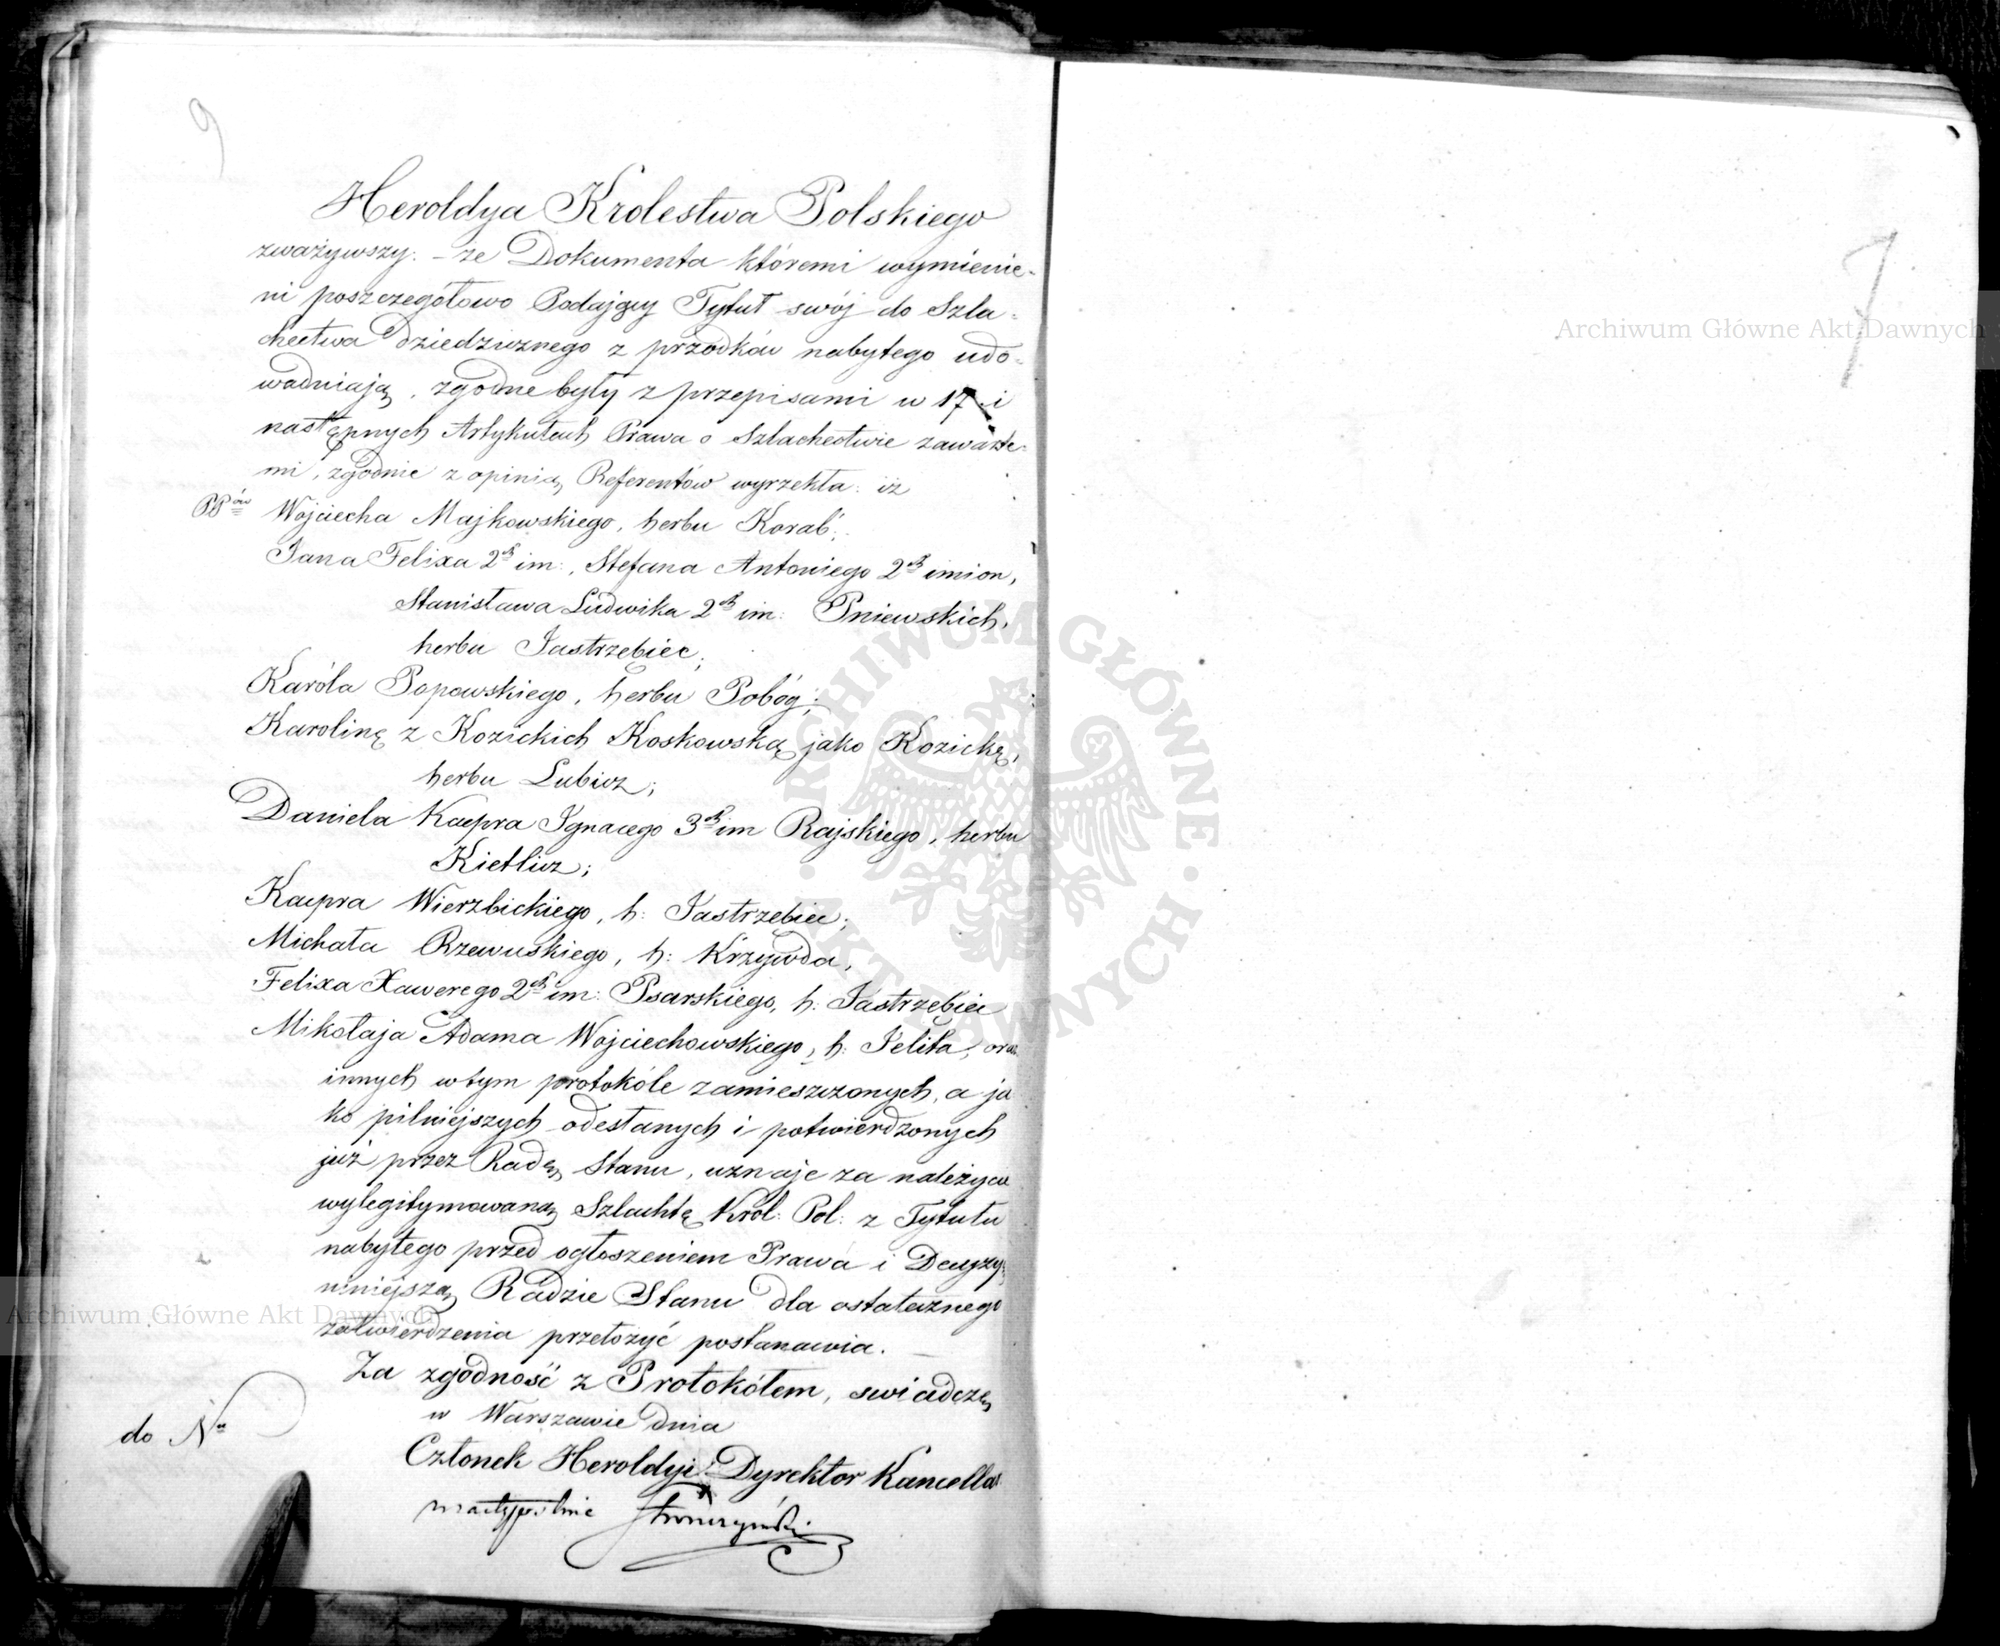 9
Heroldya Krolestwa Polskiego
zważywszy. – ze Dokumenta któremi wymienie-
ni poszczegółowo Podający Tytuł swój do Szla-
chectwa Dziedzicznego z przodków nabytego udo-
wadniają, zgodne były z przepisami w 17 i
następnych Artykułach Prawa o Szlachectwie zawarte-
mi, zgodnie z opinią Referentów wyrzekła: iż
PPów Wojciecha Majkowskiego, herbu Korab;
Jana Felixa 2ch im:, Stefana Antoniego 2ch imion,
Stanisława Ludwika 2ch im: Pniewskich,
herbu Jastrzębiec;
Karóla Popowskiego, herbu Pobóg;
Karolinę z Kozickich Koskowską jako Kozicką,
herbu Lubicz;
Daniela Kacpra Ignacego 3ch im Rajskiego, herbu
Kietlicz;
Kacpra Wierzbickiego, h: Jastrzębiec;
Michała Rzewuskiego, h: Krzywda,
Felixa Xawerego 2ch im: Psarskiego, h: Jastrzębiec
Mikołaja Adama Wojciechowskiego, h: Jelita, oraz
innych w tym protokóle zamieszczonych, a ja
ko pilniejszych odesłanych i potwierdzonych
już przez Radę Stanu, uznaje za należycie
wylegitymowaną Szlachtę Król: Pol: z Tytułu
nabytego przed ogłoszeniem Prawa i Decyzy
niniejszą Radzie Stanu dla ostatecznego
zatwierdzenia przełożyć postanawia. —
Za zgodność z Protokółem, swiadczę
w Warszawie dnia
do Nru
Członek Heroldyi Dyrektor Kancellar
Stronczyński
7
Archiwum Główne Akt Dawnych
Archiwum Główne Akt Dawnych
ARCHIWUM GŁÓWNE AKT DAWNYCH